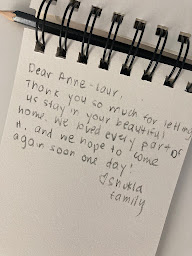 Dear Anne-Laur,
Thank you so much for letting
us stay in your beautiful
home. We loved every part of
it, and we hope to come
again soon one day!
♡Shukla
family